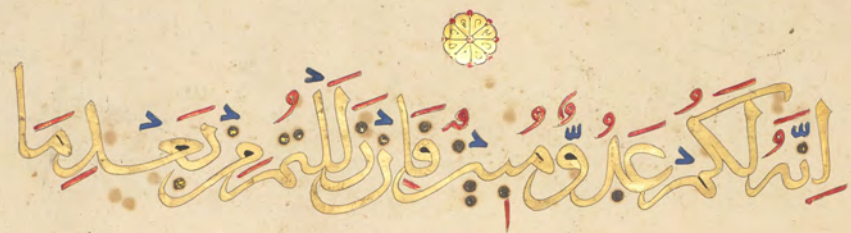 إِنَّهُ لَكُمْ عَدُوٌّ مُبِينٌ فَإِنْ زَلَلْتُمْ مِنْ بَعْدِ مَا